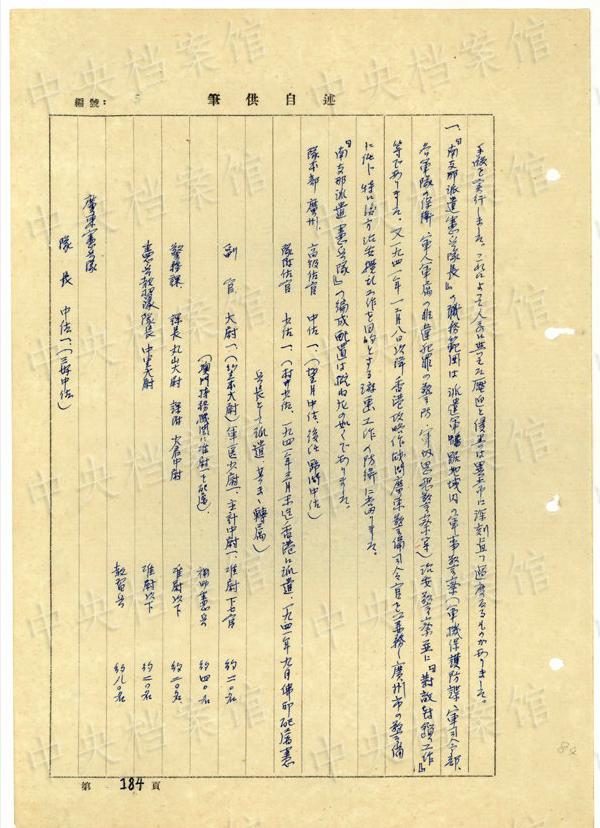 編號:
筆供自述
手段を実行しました。これによって人民に与えた圧迫と侵害は異常に深刻且つ過酷なるものがありました。
一、『南支那派遣憲兵隊長』の職務範囲は派遣軍警備地域内の軍事警察(軍機保護防諜、軍司令部、
各軍隊の保衛、軍人軍属の非違犯罪の警防、軍紀思想警察等)治安警察並に『対敵封鎖の工作』
等でありました。又一九四一年一二月八日以降、香港攻略作戦間廣東警備司令官を兼務し廣州市の警備
に任じ特に治安攪乱工作を目的とする謀略工作の防衛に当りました。
『南支那派遣憲兵隊』の編成配置は概ね次の如くでありました。
隊本部 廣州 高級佐官 中佐一、(望月中佐、後任 中佐)
隊附佐官 少佐一、(村井少佐、一九四一年三月末迄香港に派遣、一九四一年九月佛印配属憲
兵長として派遣 転属)
副官 大尉一、(鈴木大尉)軍医少尉一、主計中尉一、准尉下士官 約二〇名
(澳門特務機関に准尉一配属) 補助憲兵 約四〇名
警務課 課長 丸山大尉 課附 大倉中尉 准尉以下 約二〇名
憲兵教習隊 隊長 中里大尉 准尉以下 約一〇名
教習兵 約八〇名
廣東憲兵隊
隊長 中佐一、(三好中佐)
第 184 頁
中央档案馆